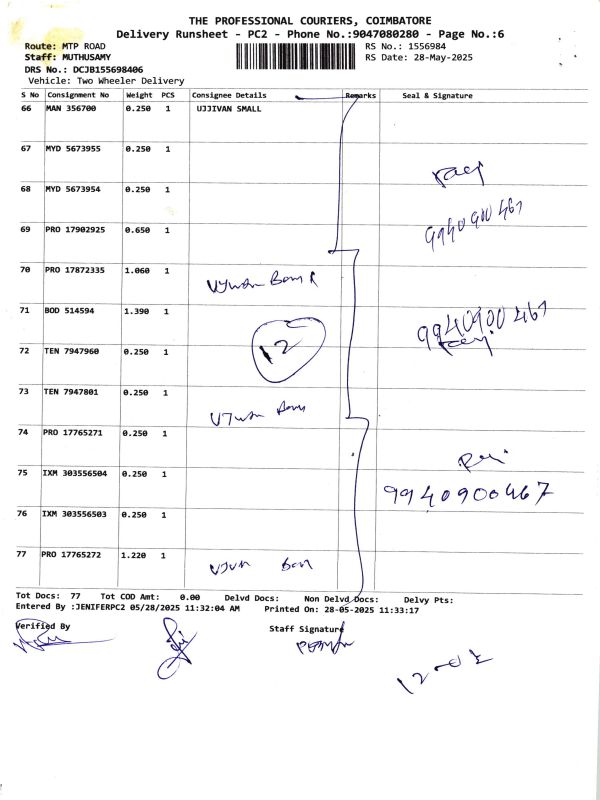 THE PROFESSIONAL COURIERS, COIMBATORE
Delivery Runsheet - PC2 - Phone No.:9047080280 - Page No.:6
Route: MTP ROAD RS No.: 1556984
Staff: MUTHUSAMY RS Date: 28-May-2025
DRS No.: DCJB155698406
Vehicle: Two Wheeler Delivery
S No Consignment No Weight PCS Consignee Details Remarks Seal & Signature
66 MAN 356700 0.250 1 UJJIVAN SMALL
67 MYD 5673955 0.250 1
68 MYD 5673954 0.250 1
9940900467
69 PRO 17902925 0.650 1
70 PRO 17872335 1.060 1
71 BOD 514594 1.390 1
9940900467
72 TEN 7947960 0.250 1 12
73 TEN 7947801 0.250 1
74 PRO 17765271 0.250 1
75 IXM 303556504 0.250 1
9940900467
76 IXM 303556503 0.250 1
77 PRO 17765272 1.220 1
Tot Docs: 77 Tot COD Amt: 0.00 Delvd Docs: Non Delvd Docs: Delvy Pts:
Entered By :JENIFERPC2 05/28/2025 11:32:04 AM Printed On: 28-05-2025 11:33:17
Verified By Staff Signature